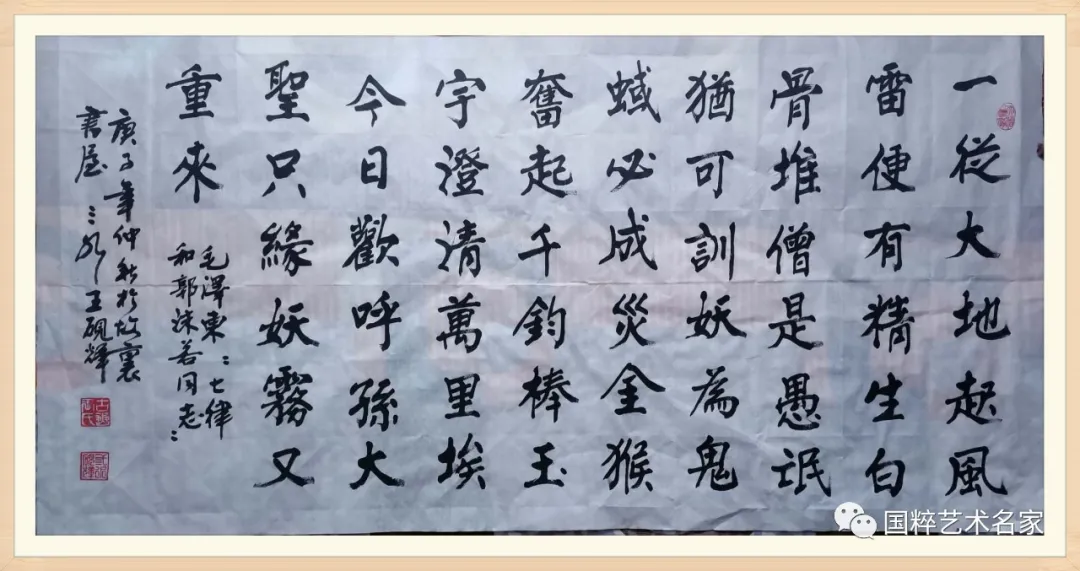 一從大地起風
雷便有精生白
骨堆僧是愚氓
猶可訓妖為鬼
蜮必成災金猴
奮起千鈞棒玉
宇澄清萬里埃
今日歡呼孫大
聖只緣妖霧又
重來
毛澤東：七律
和郭沫若同志：
庚子年仲秋於故裏
書屋 王硯輝
国粹艺术名家